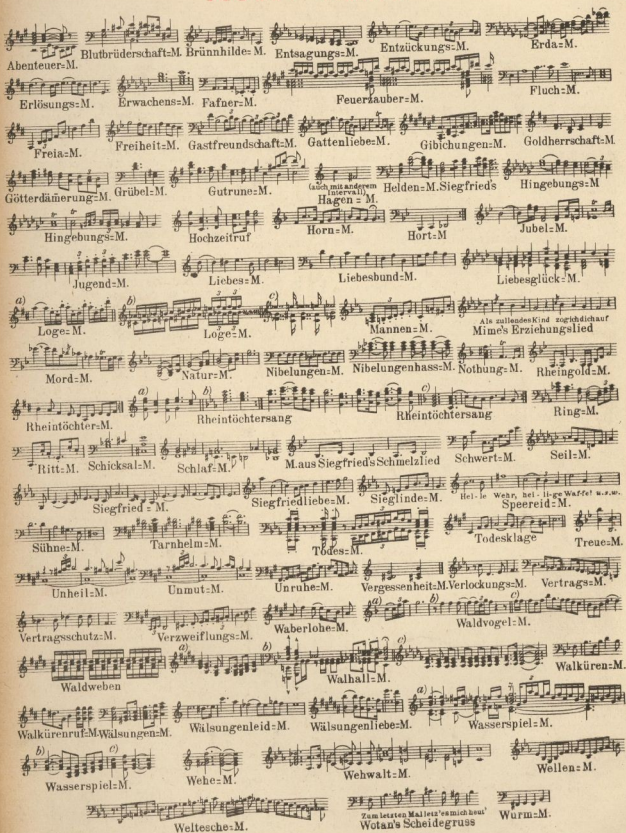 Abenteuer=M. Blutbrüderschaft=M. Brünnhilde=M. Entsagungs=M. Entzückungs=M. Erda=M.
Erlösungs=M. Erwachens=M. Fafner=M. Feuerzauber=M. Fluch=M.
Freia=M. Freiheit=M. Gastfreundschaft=M. Gattenliebe=M. Gibichungen=M. Goldherrschaft=M.
Götterdämerung=M. Grübel=M. Gutrune=M. (auch mit anderem Intervall) Hagen=M. Helden=M. Siegfried's Hingebungs=M
Hingebungs=M. Hochzeitruf Horn=M. Hort=M Jubel=M.
Jugend=M. Liebes=M. Liebesbund=M. Liebesglück=M.
a) b) c)
Loge=M. Loge=M. Mannen=M. Als zullendes Kind zog ich dich auf
Mime's Erziehungslied
Mord=M. Natur=M. Nibelungen=M. Nibelungenhass=M. Nothung=M. Rheingold=M.
a) b) c)
Rheintöchter=M. Rheintöchtersang Rheintöchtersang Ring=M.
Ritt=M. Schicksal=M. Schlaf=M. M. aus Siegfried's Schmelzlied Schwert=M. Seil=M.
Siegfried=M. Siegfriedliebe=M. Sieglinde=M. Hel-le Wehr, hei-li-ge Waffe! u.s.w.
Speereid=M.
Sühne=M. Tarnhelm=M. Todes=M. Todesklage Treue=M.
Unheil=M. Unmut=M. Unruhe=M. Vergessenheit=M. Verlockungs=M. Vertrags=M.
a) b) c)
Vertragsschutz=M. Verzweiflungs=M. Waberlohe=M. Waldvogel=M.
a) b) c)
Waldweben Walhall=M. Walküren=M.
a)
Walkürenruf=M. Wälsungen=M. Wälsungenleid=M. Wälsungenliebe=M. Wasserspiel=M.
b) c)
Wasserspiel=M. Wehe=M. Wehwalt=M. Wellen=M.
Weltesche=M. Zum letzten Mal letz' es mich heut'
Wotan's Scheidegruss Wurm=M.